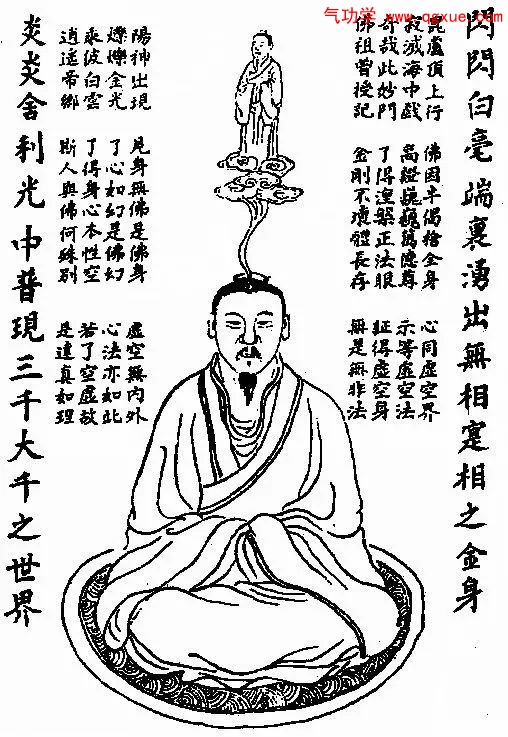 气功学 www.qgxue.com
閃閃白毫端裏湧出無相寔相之金身
毘盧頂上行
寂滅海中戲
奇哉此妙門
佛祖曾授記
佛因半偈捨全身
高證巍巍萬德尊
了得涅槃正法眼
金剛不壞體長存
心同虛空界
示等虛空法
証得虛空身
無是無非法
陽神出現
爍爍金光
乘彼白雲
逍遙帝鄉
見身無佛是佛身
了心如幻是佛幻
了得身心本性空
斯人與佛何殊別
虛空無內外
心法亦如此
若了空虛故
是達真如理
炎炎舍利光中普現三千大千之世界